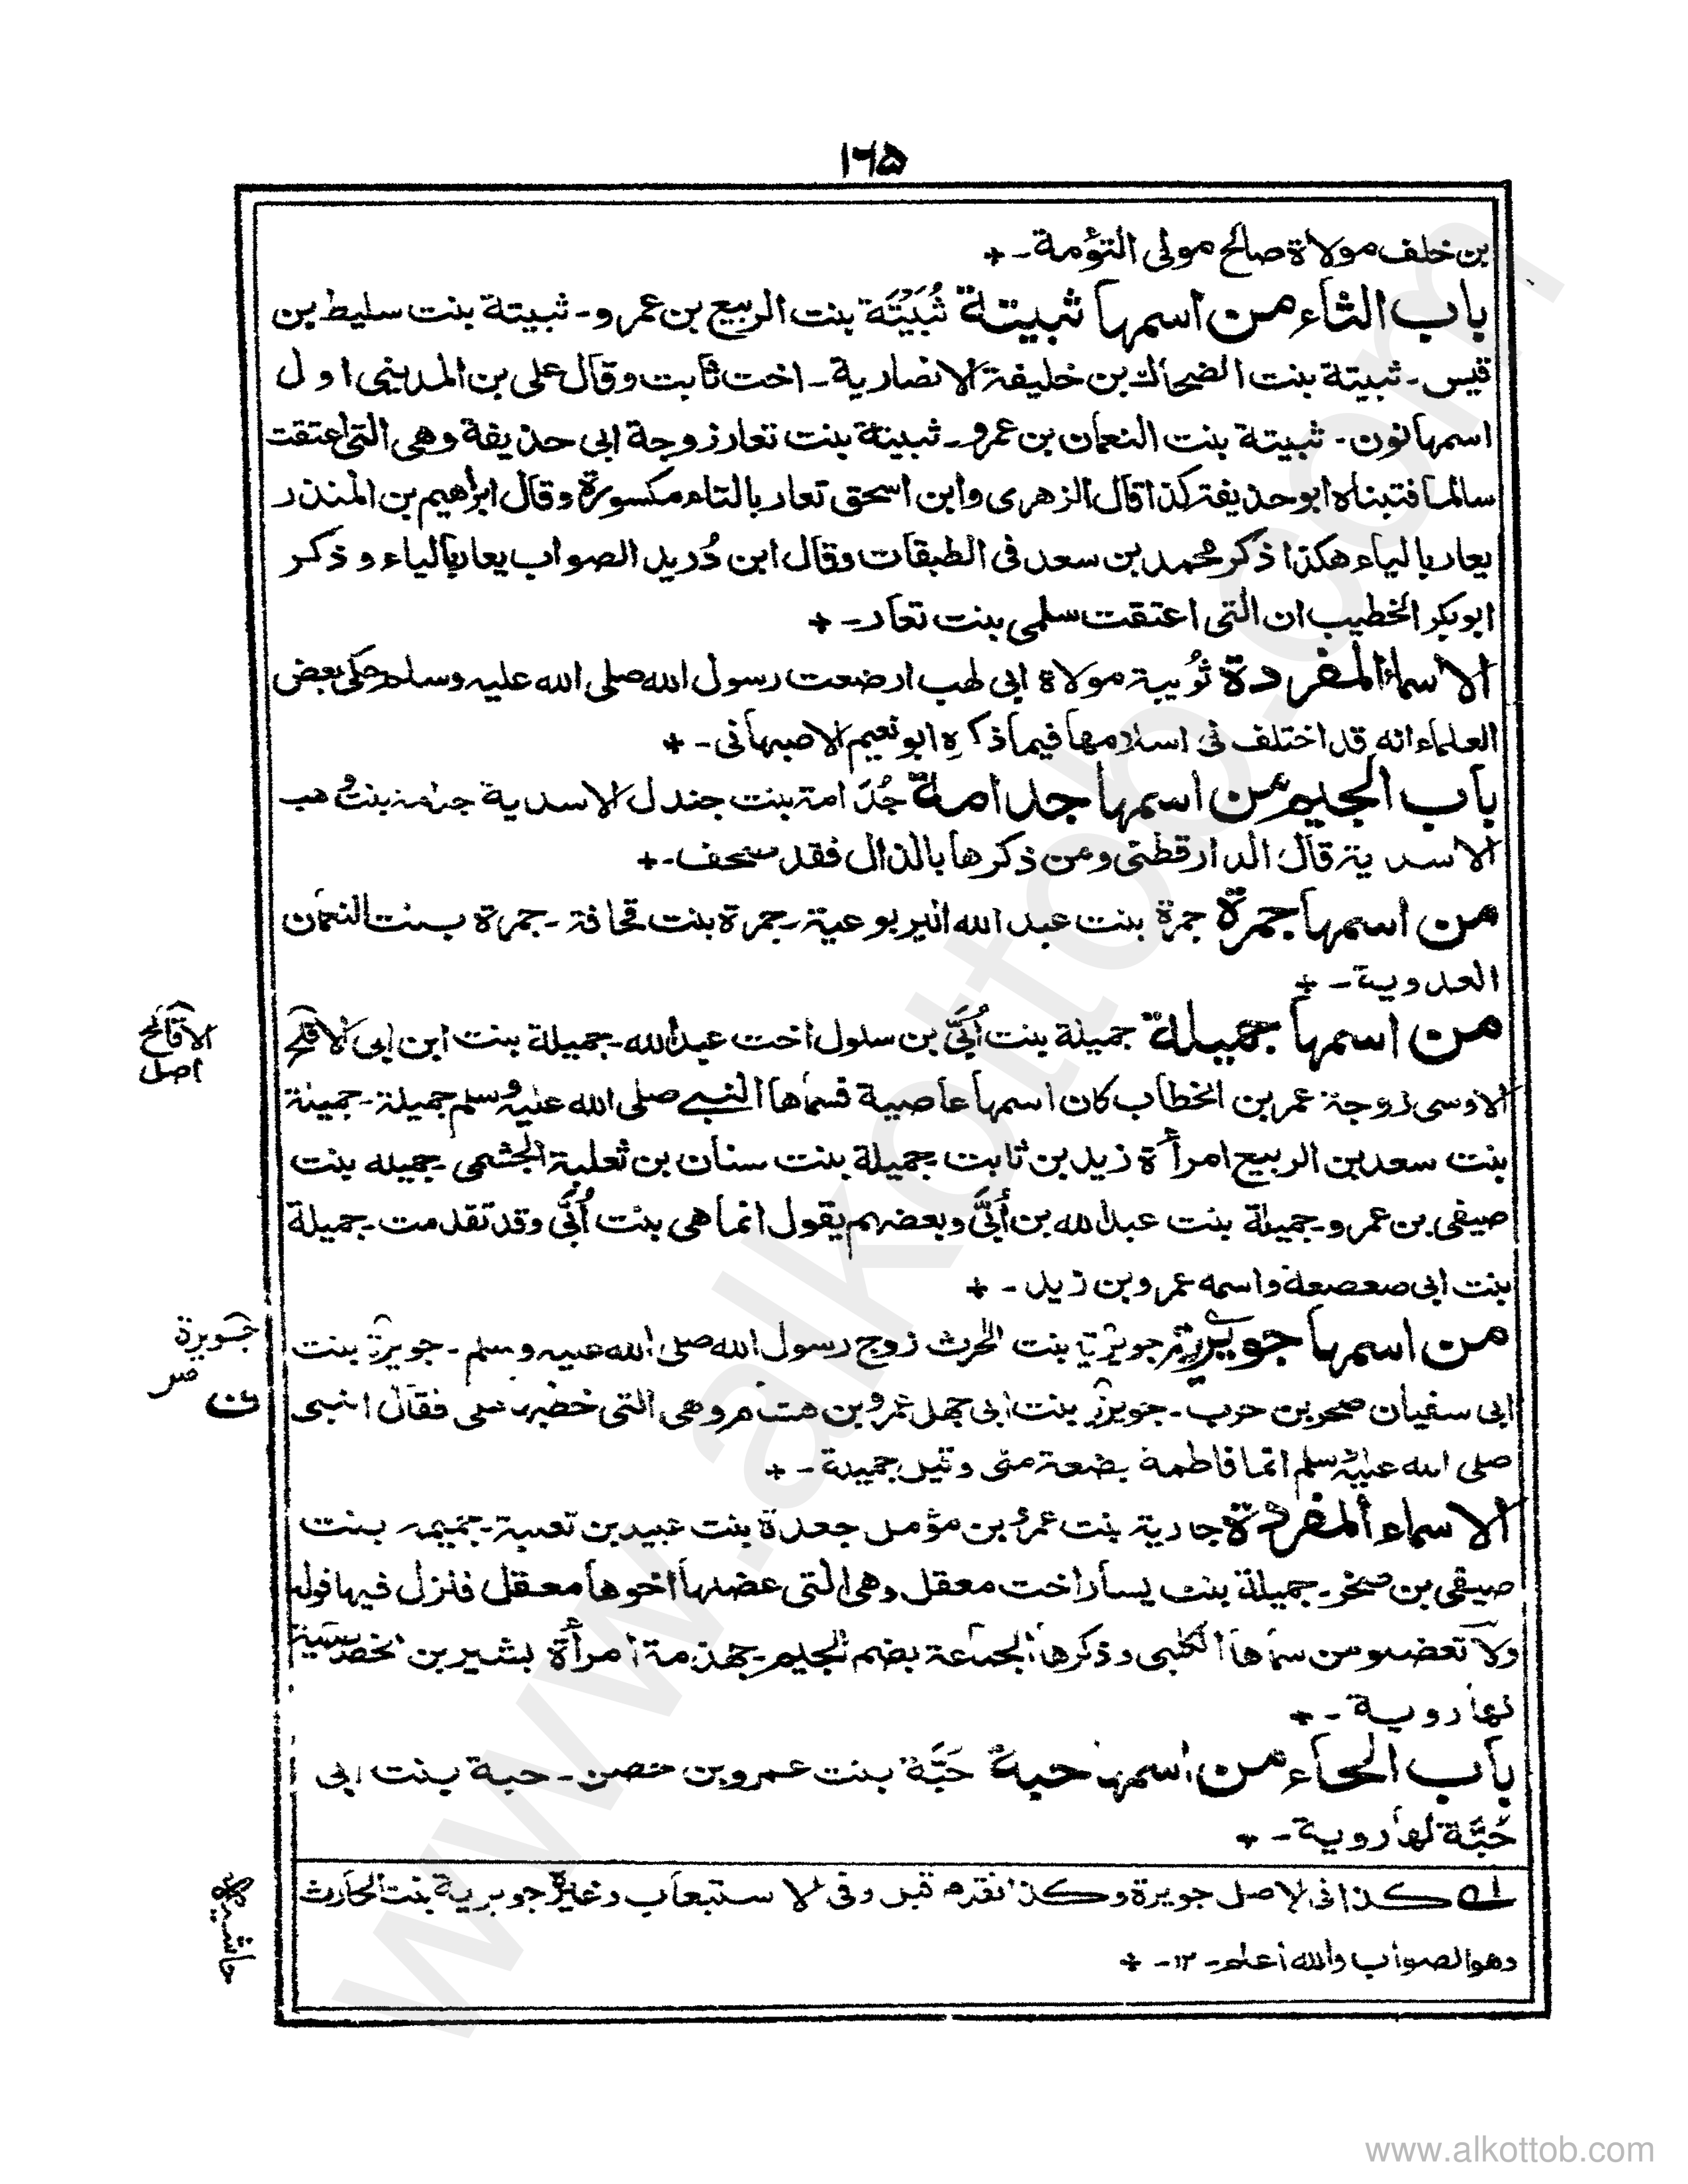 ١٦٥
بن خلف مولاة صالح مولى التؤمة ـ+
باب الثاء من اسمها ثبيتة ثُبَيْتَة بنت الربيع بن عمرو ـ ثبيتة بنت سليط بن
قيس ـ ثبيتة بنت الضحاك بن خليفة الانصارية ـ اخت ثابت وقال على بن المدينى اول
اسمها نون ـ ثبيتة بنت النعمان بن عمرو ـ ثبيتة بنت تعار زوجة ابى حذيفة وهى التى اعتقت
سالما فتبناه ابو حذيفة كذا قال الزهرى وابن اسحق تعار بالتاء مكسورة وقال ابراهيم بن المنذر
يعار بالياء هكذا ذكر محمد بن سعد فى الطبقات وقال ابن دُريد الصواب يعار بالياء و ذكر
ابو بكر الخطيب ان التى اعتقت سلمى بنت تعار ـ+
الاسماء المفردة ثُويبة مولاة ابى لهب ارضعت رسول الله صلى الله عليه وسلم حكى بعض
العلماء انه قد اختلف فى اسلامها فيما ذكره ابو نعيم الاصبهانى ـ+
باب الجيم من اسمها جدامة جُدَامة بنت جندل الاسدية جدامة بنت وهب
الاسدية قال الدارقطنى ومن ذكرها بالذال فقد صحف ـ+
من اسمها جمرة جمرة بنت عبد الله اليربوعية ـ جمرة بنت قحافة ـ جمرة بنت النعمان
العدوية ـ+
من اسمها جميلة جميلة بنت أُبَىّ بن سلول اخت عبد الله ـ جميلة بنت ابن ابى الاقلح
الاقائح
اصل
الاوسى زوجة عمر بن الخطاب كان اسمها عاصية فسماها النبى صلى الله عليه وسلم جميلة ـ جميلة
بنت سعد بن الربيع امرأة زيد بن ثابت ـ جميلة بنت سنان بن ثعلبة الجشمى ـ جميله بنت
صيفى بن عمرو ـ جميلة بنت عبد الله بن أُبَىّ وبعضهم يقول انما هى بنت أُبَىّ وقد تقدمت ـ جميلة
بنت ابى صعصعة واسمه عمرو بن زيد ـ+
من اسمها جويرية جويرية بنت الحرث زوج رسول الله صلى الله عليه وسلم ـ جويرة بنت
جويرة
ابى سفيان صخر بن حرب ـ جويرة بنت ابى جهل عمرو بن هشام وهى التى خطبها على فقال النبى
صلى الله عليه وسلم انما فاطمة بضعة منى وقيل جميلة ـ+
الاسماء المفردة جارية بنت عمرو بن مؤمل جعدة بنت عبيد بن ثعلبة ـ جميمه بنت
صيفى بن صخر ـ جميلة بنت يسار اخت معقل وهى التى عضلها اخوها معقل فنزل فيها قوله
ولا تعضلوهن سماها الكلبى وذكرها الجماعة بضم الجيم ـ جهذمة امرأة بشير بن الخصاصية
لها روية ـ+
باب الحاء من اسمها حبة حَبَّة بنت عمرو بن حصن ـ حبة بنت ابى
حَبَّة لها روية ـ+
١ كذا فى الاصل جويرة وكذا تقدم قبل وفى الاستيعاب وغيره جويرية بنت الحارث
وهو الصواب والله اعلم ـ ١٢ ـ+
حاشيه
www.alkottob.com
www.alkottob.com